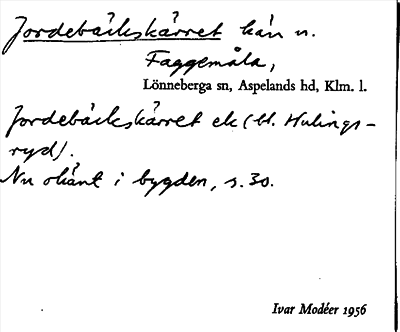 Jordebäckskärret kän n.
Faggemåla,
Lönneberga sn, Aspelands hd, Klm. l.
Jordebäckskärret ek (bl. Hulings-
ryd).
Nu okänt i bygden, s. 30.
Ivar Modéer 1956